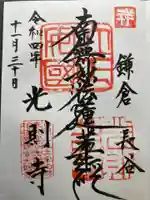 鎌倉
長谷
南無妙法蓮華経
光則寺
令和四年
十一月三十日